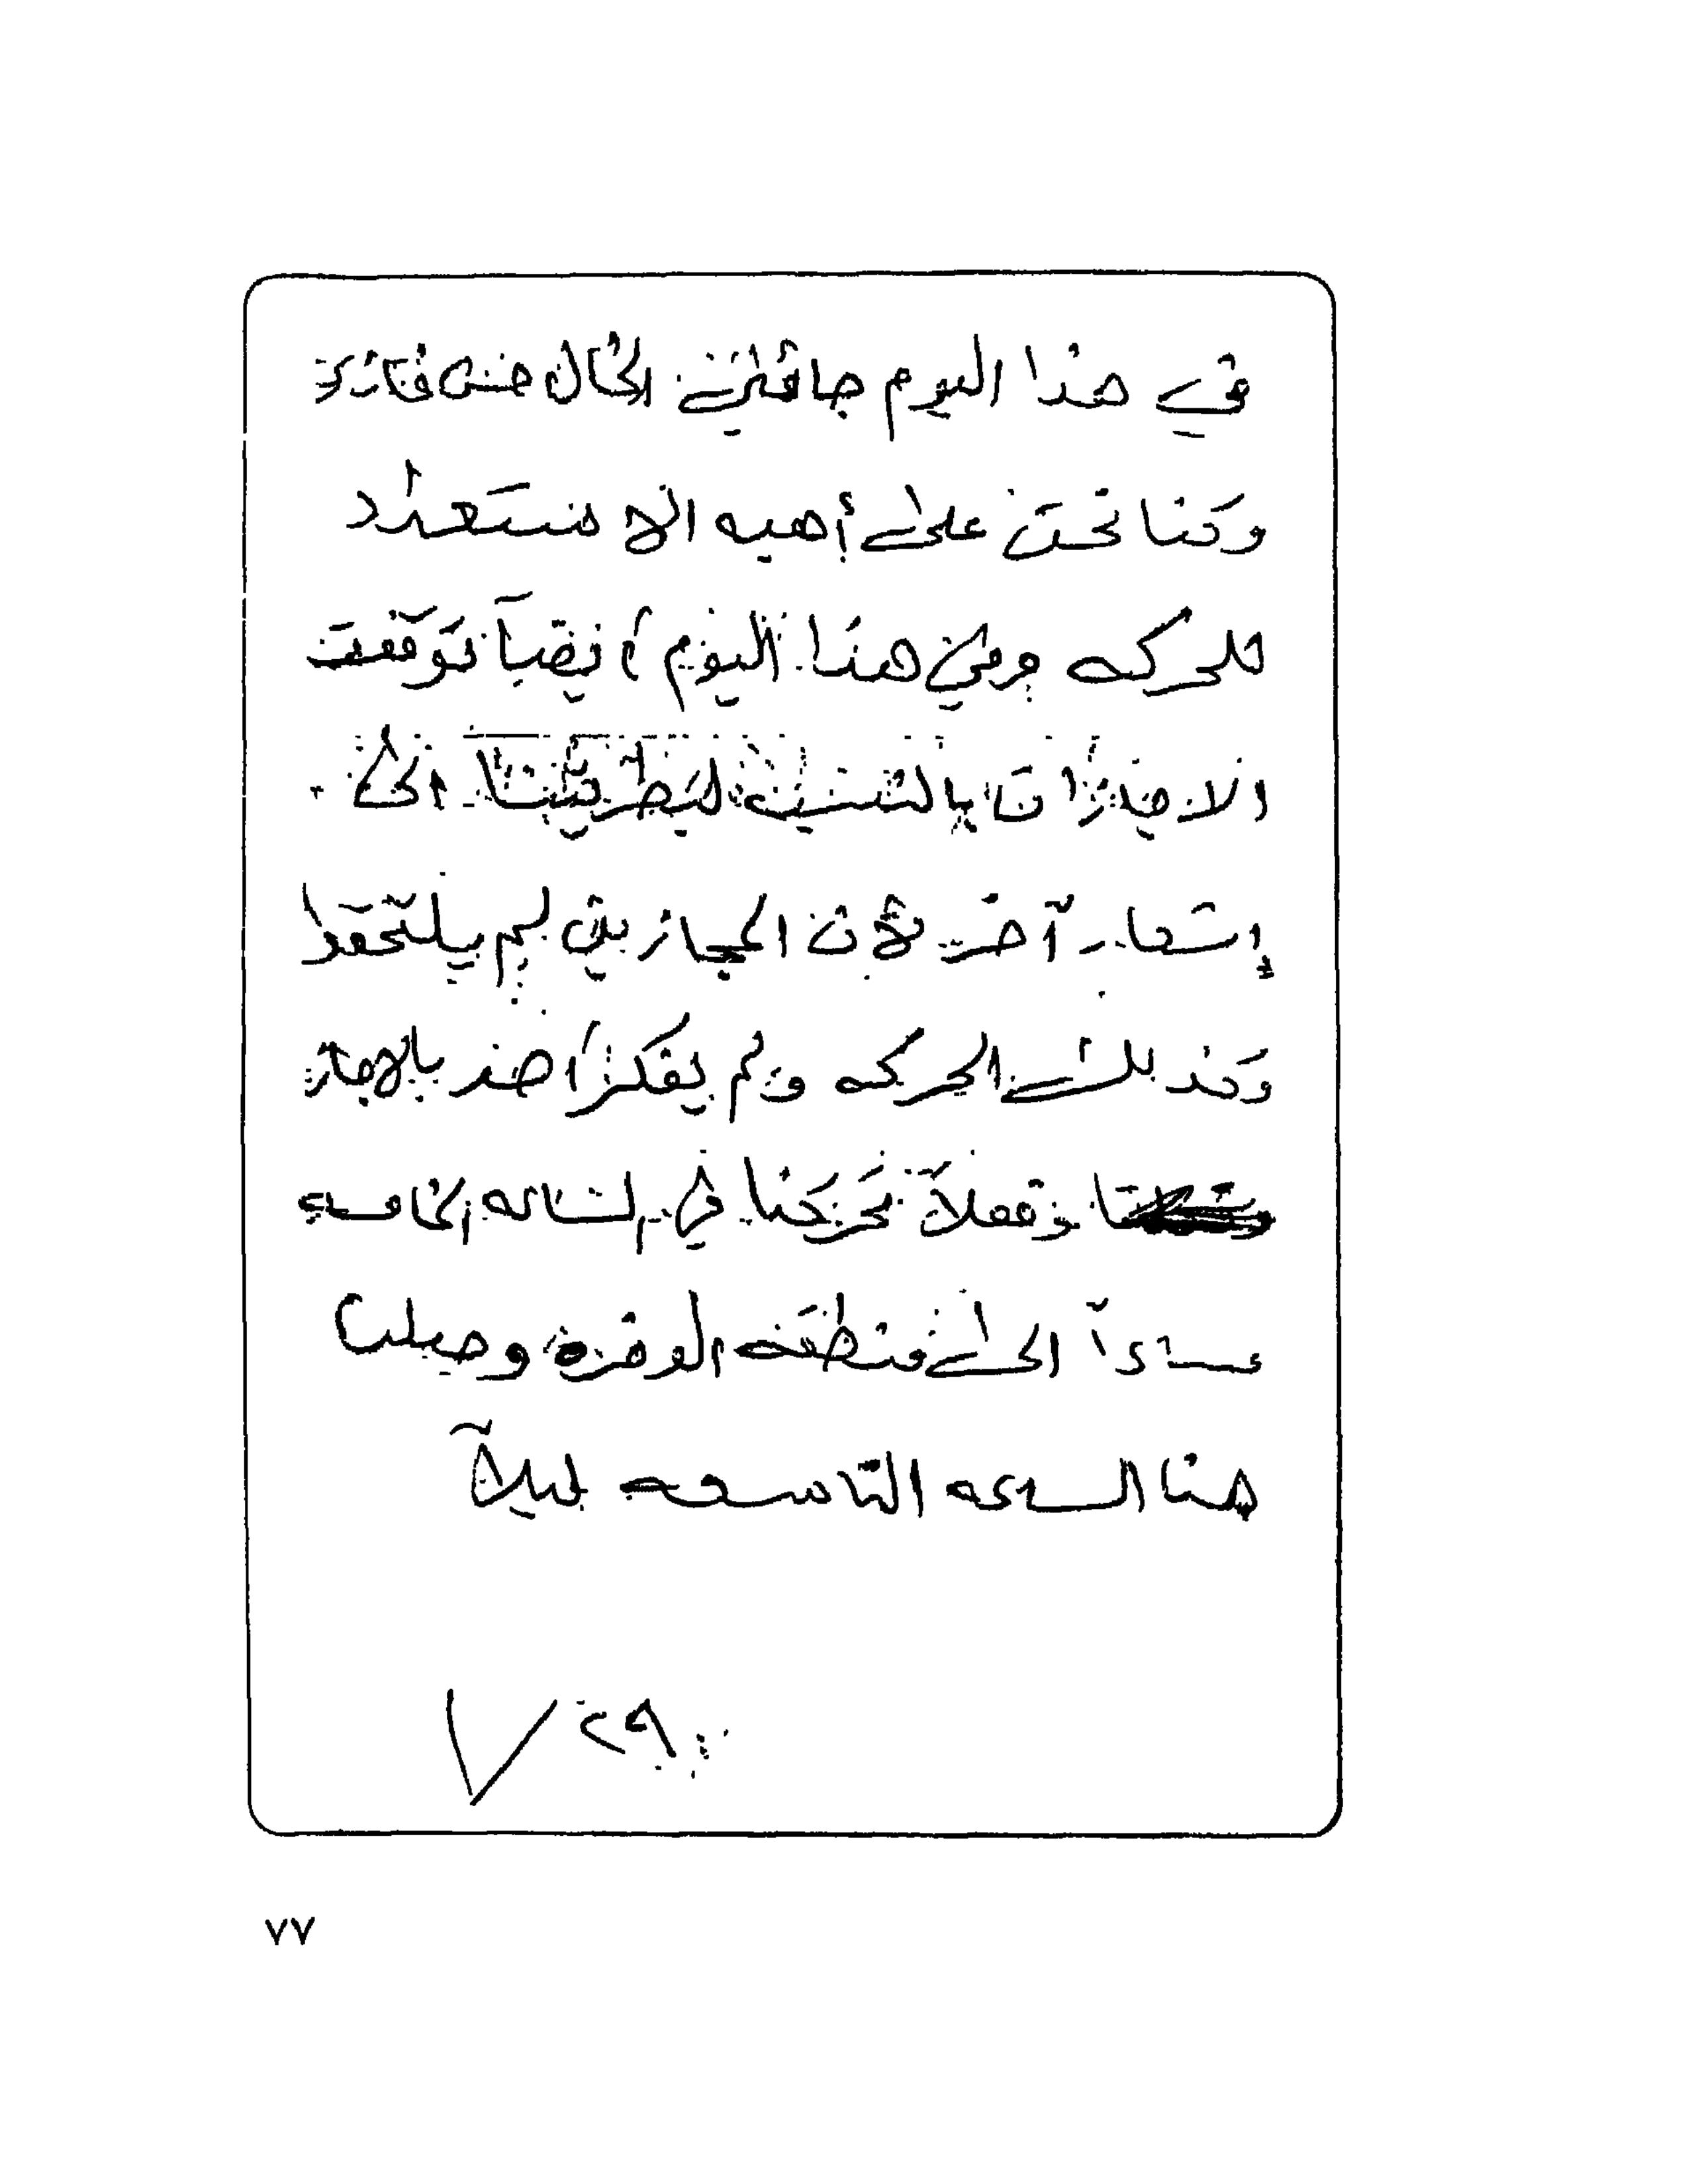 في هذا اليوم جائني الخال حسن
وكنا نحن على أهبه الاستعداد
للحركه وفي هذا اليوم ايضاً توقفت
الاجازات بالنسبه لبطريتنا الى
إشعار آخر لأن المجازين لم يلتحقوا
وكذلك الحركه ولم يفكر احد بالاجازه
وفعلاً تحركنا في الساعه الخامسه
مساءاً الى منطقه الوفره وصلنا
هنا الساعه التاسعه ليلاً
٢٩
٧٧